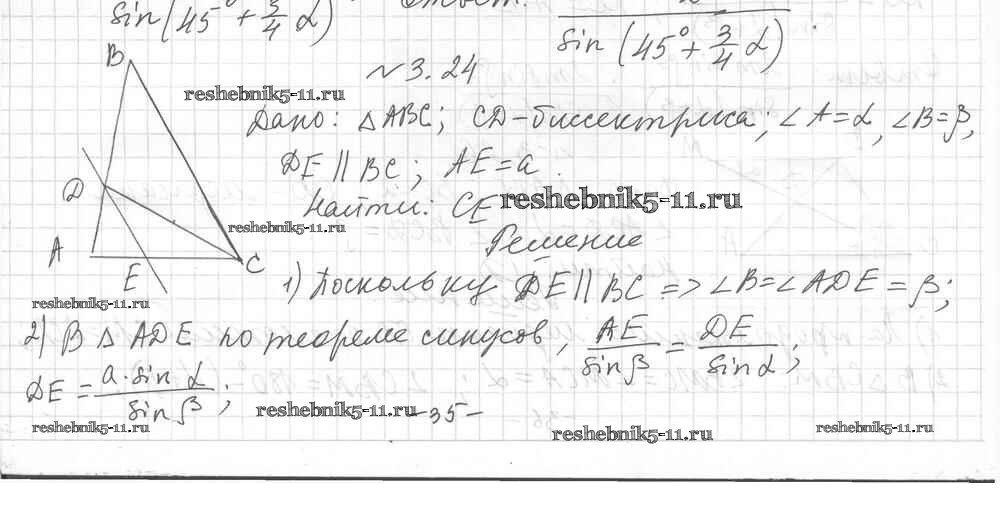 sin(45° + 3/4 α)
sin(45° + 3/4 α) .
B
№3.24
reshebnik5-11.ru
Дано: △ABC; CD-биссектриса; ∠A=α, ∠B=β,
DE || BC; AE=a.
D
Найти: CE
reshebnik5-11.ru
reshebnik5-11.ru
Решение
A
E
C
1) Поскольку DE || BC => ∠B=∠ADE=β;
reshebnik5-11.ru
2) В △ADE по теореме синусов, AE/sinβ = DE/sinα;
DE = a·sin α/sin β;
reshebnik5-11.ru
-35-
reshebnik5-11.ru
reshebnik5-11.ru
reshebnik5-11.ru